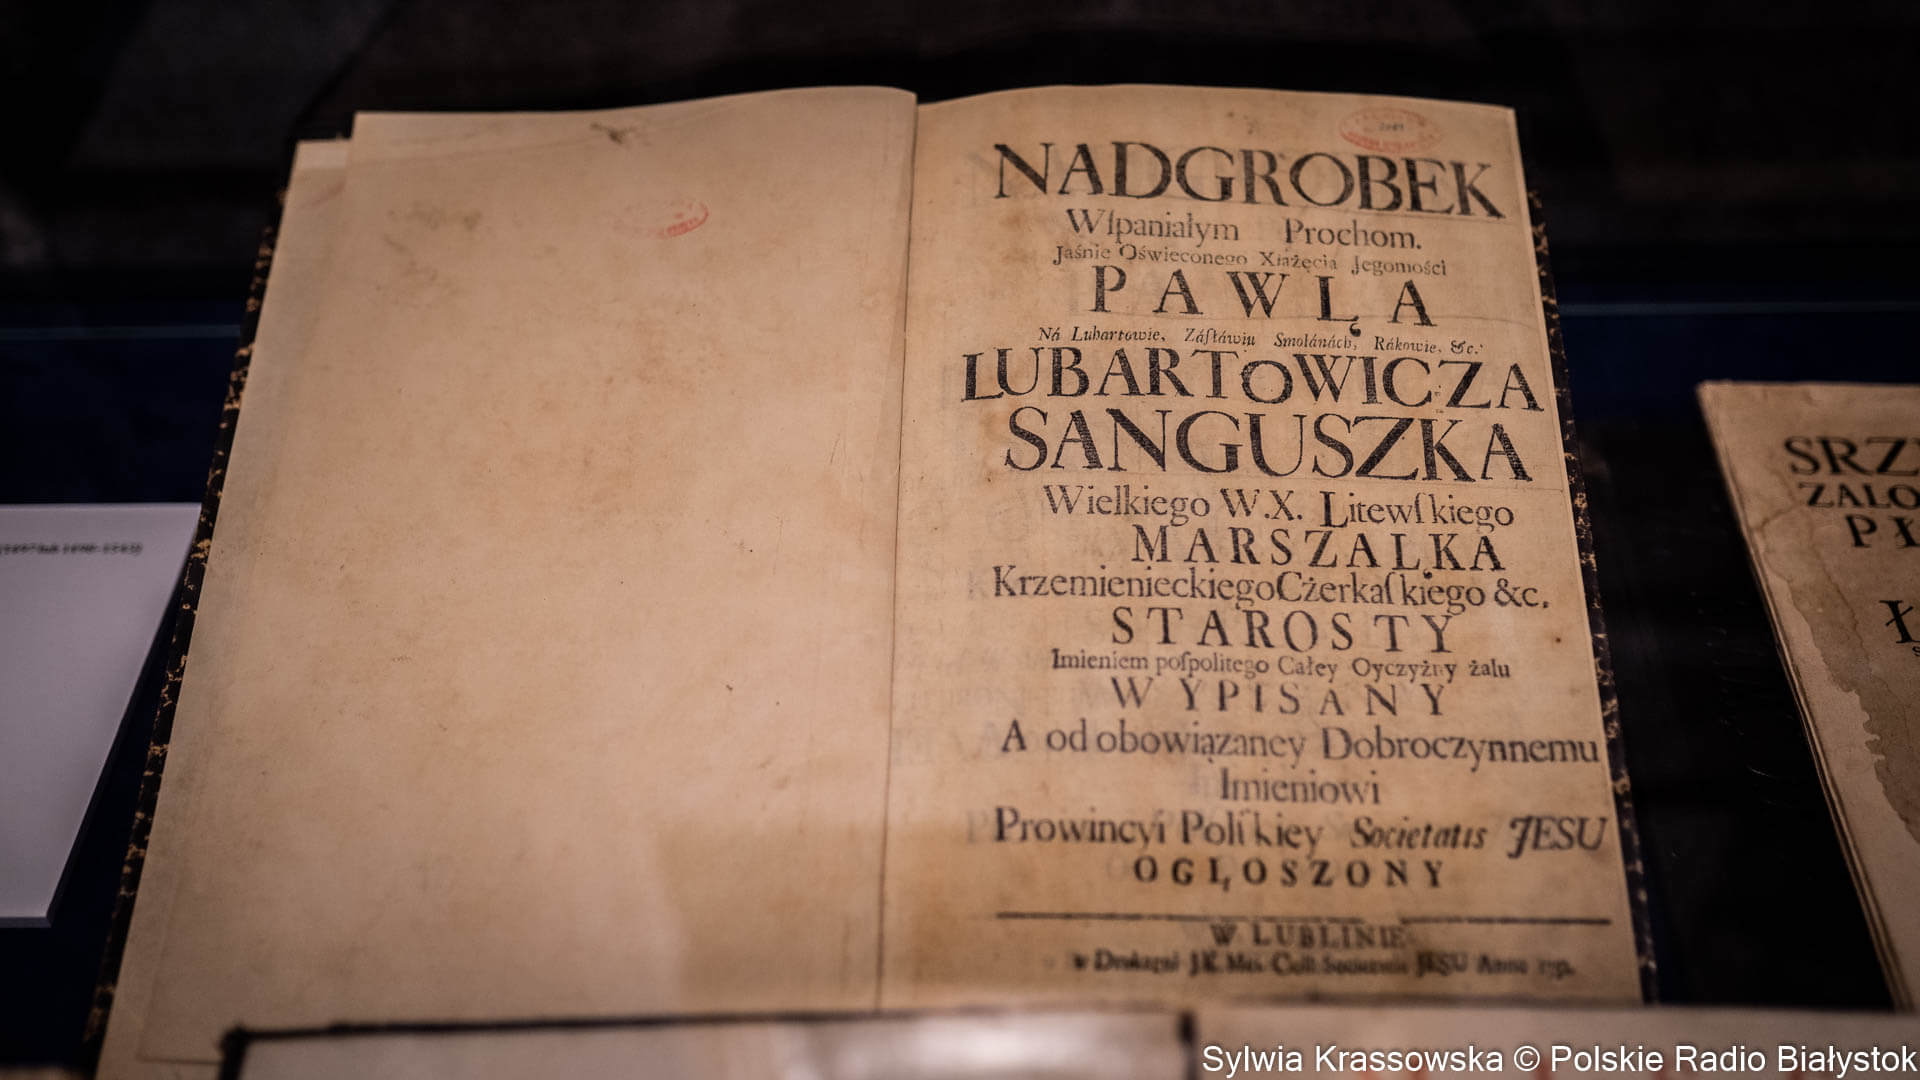 NADGROBEK
Wſpaniałym Prochom.
Jaśnie Oświeconego Xiążęcia Jegomości
PAWŁA
Ná Lubartowie, Zásłáwiu Smolánách, Rákowie, &c.
LUBARTOWICZA
SANGUSZKA
Wielkiego W.X. Litewſkiego
MARSZAŁKA
KrzemienieckiegoCżerkaſkiego &c.
STAROSTY
Imieniem poſpolitego Całey Oyczyżny żalu
WYPISANY
A od obowiązaney Dobroczynnemu
Imieniowi
Prowincyi Polſkiey Societatis JESU
OGŁOSZONY
W LUBLINIE
w Drukarni J.K. Mći Coll: Societatis JESU Anno
SRZ
ZALO
PŁ
Ł
Sylwia Krassowska © Polskie Radio Białystok